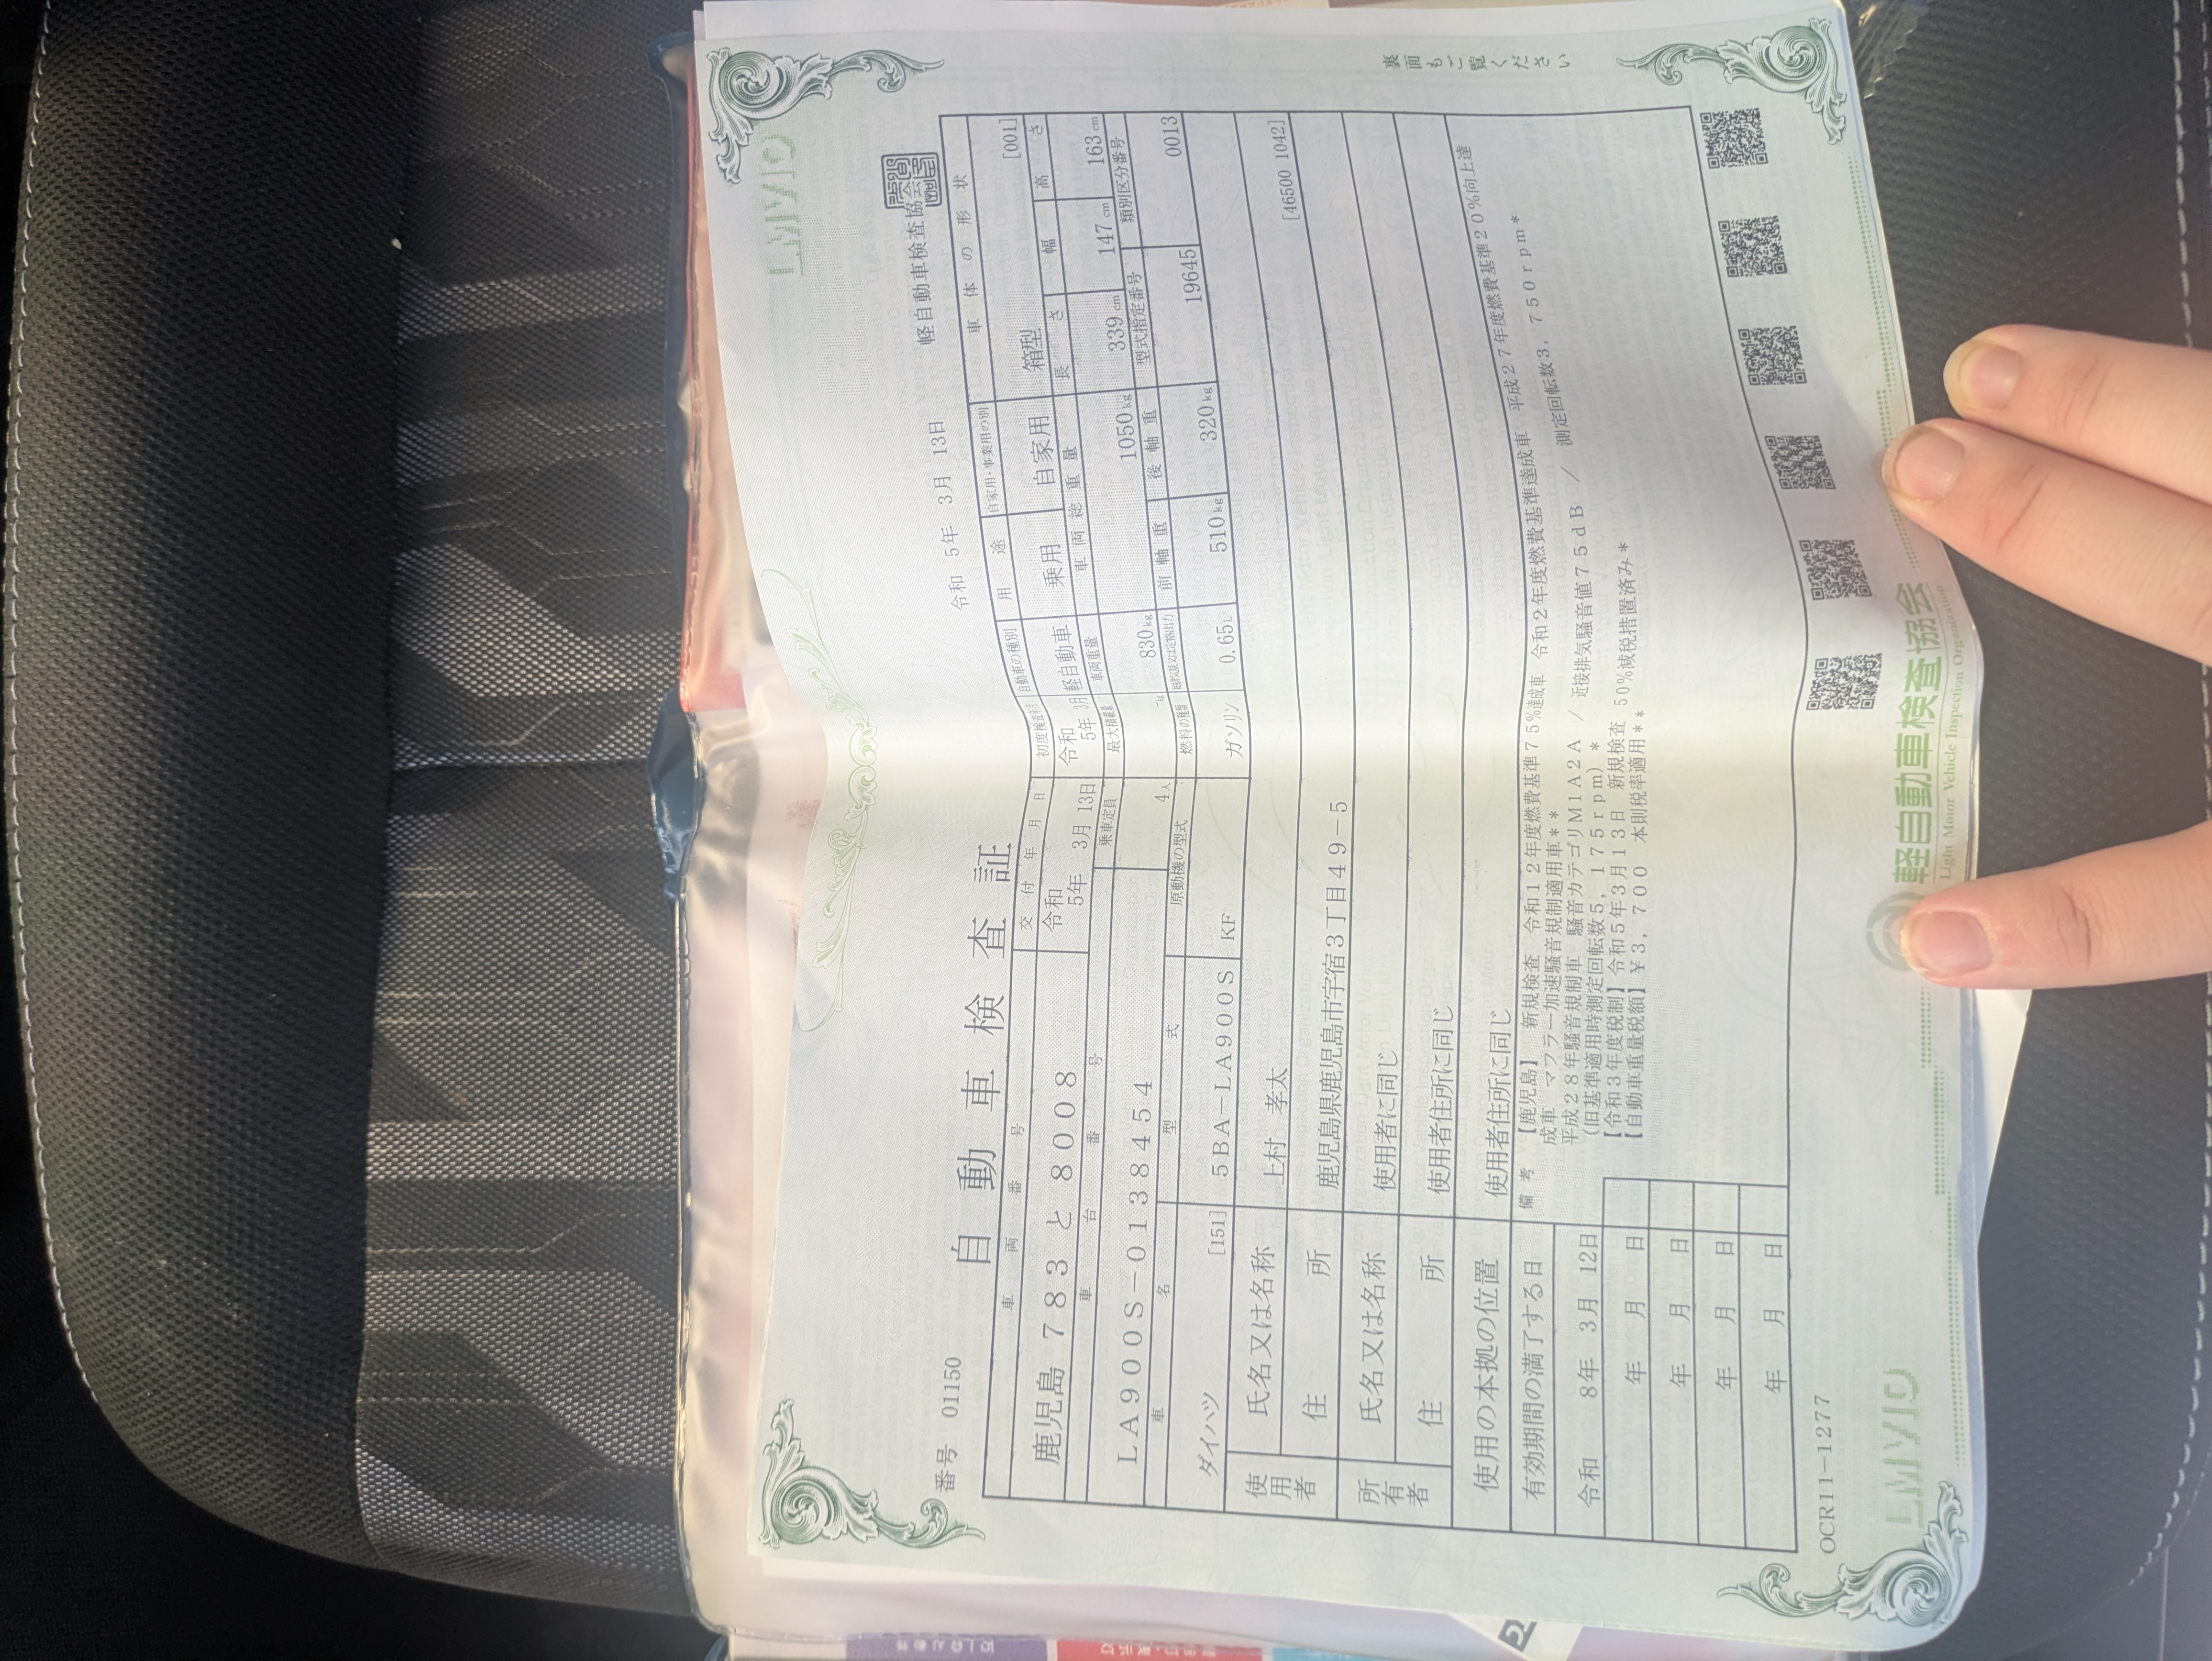 番号 01150
自動車検査証
令和 5年 3月 13日
軽自動車検査協会
車両番号
交付年月日
初度検査年月
自動車の種別
用途
自家用・事業用の別
車体の形状
鹿児島 783 と 8008
令和 5年 3月 13日
令和 5年 3月
軽自動車
乗用
自家用
箱型 [001]
車台番号
乗車定員
最大積載量
車両重量
車両総重量
長さ
幅
高さ
LA900S-0138454
4人
kg
830kg
1050kg
339cm
147cm
163cm
車名
型式
原動機の型式
燃料の種類
前軸重
後軸重
型式指定番号
類別区分番号
ダイハツ [151]
5BA-LA900S
KF
ガソリン
0.65L
510kg
320kg
19645
0013
使用者
氏名又は名称
上村 孝太
住所
鹿児島県鹿児島市宇宿3丁目49-5
[46500 1042]
所有者
氏名又は名称
使用者に同じ
住所
使用者住所に同じ
使用の本拠の位置
使用者住所に同じ
有効期間の満了する日
令和 8年 3月 12日
年 月 日
年 月 日
年 月 日
年 月 日
備考
【鹿児島】 新規検査 令和12年度燃費基準75%達成車 令和2年度燃費基準達成車 平成27年度燃費基準20%向上達
成車 マフラー加速騒音規制適用車**
平成28年騒音規制車 騒音カテゴリM1A2A / 近接排気騒音値75dB / 測定回転数3,750rpm*
(旧基準適用時測定回転数5,175rpm) *
【令和3年度税制】令和5年3月13日 新規検査 50%減税措置済み*
【自動車重量税額】¥3,700 本則税率適用**
OCR11-1277
軽自動車検査協会
Light Motor Vehicle Inspection Organization
裏面もご覧ください
LMVIO
LMVIO